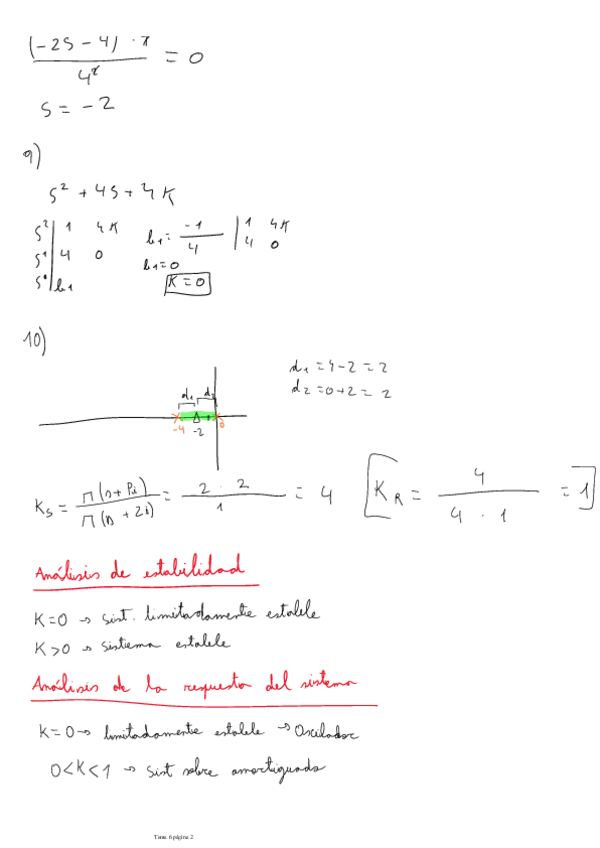 (-2s-4) · π / 4^2 = 0
s = -2
9)
s² + 4s + 4K
s² | 1 4K
s¹ | 4 0
s⁰ | b1
b1 = -1/4 | 1 4K
4 0
b1 = 0
K = 0
10)
d1 = 4-2 = 2
d2 = 0+2 = 2
d1 d2
-4 -2 0
Ks = π(s+Pi) / π(s+zi) = 2 · 2 / 1 = 4 [KR = 4 / 4 · 1 = 1]
Análisis de estabilidad
K=0 → sist. limitadamente estable
K>0 → sistema estable
Análisis de la respuesta del sistema
K=0 → limitadamente estable → Oscilador
0<K<1 → sist sobre amortiguado
Tema 6 página 2